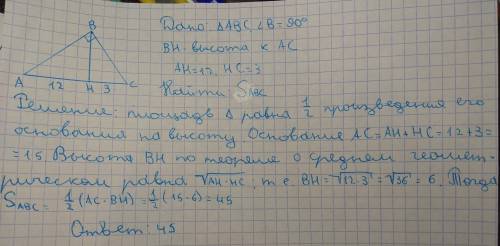 B
A 12 H 3 C
Дано: ΔABC, ∠B=90°
BH-высота к AC
AH=12, HC=3
Найти S_ABC
Решение: площадь Δ равна 1/2 произведения его
основания на высоту. Основание AC=AH+HC=12+3=
=15. Высота BH по теореме о среднем геомет-
рическом равна √AH·HC, т.е. BH=√12·3=√36=6. Тогда
S_ABC = 1/2(AC·BH)=1/2(15·6)=45
Ответ: 45